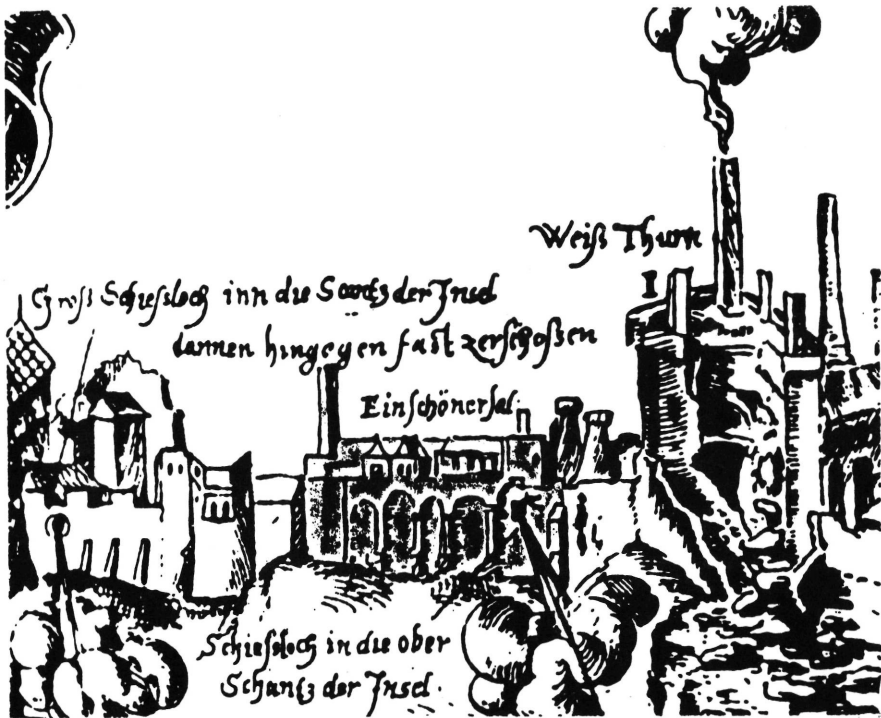 Weiß Thurn
Groß Schiessloch inn die Scantz der Insel
dannen hingegen fast zerschoßen
Ein schöner sal.
Schiessloch in die ober
Schantz der Insel.